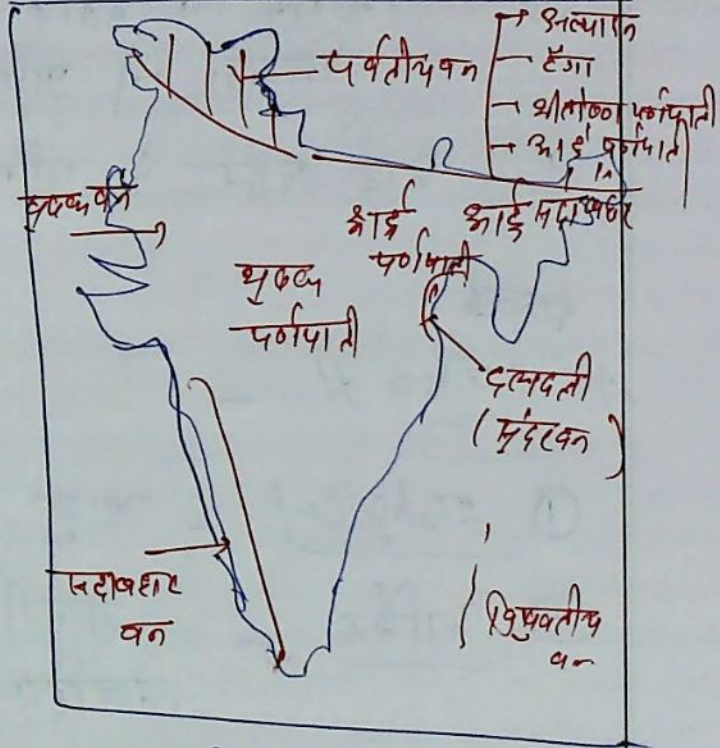 अल्पाइन
पर्वतीय वन
टैगा
शीतोष्ण पर्णपाती
आर्द्र पर्णपाती
वन
आर्द्र
पर्णपाती
आर्द्र सदाबहार
शुष्क
पर्णपाती
दलदली
(सुंदरवन)
सदाबहार
वन
विषुवतीय
वन